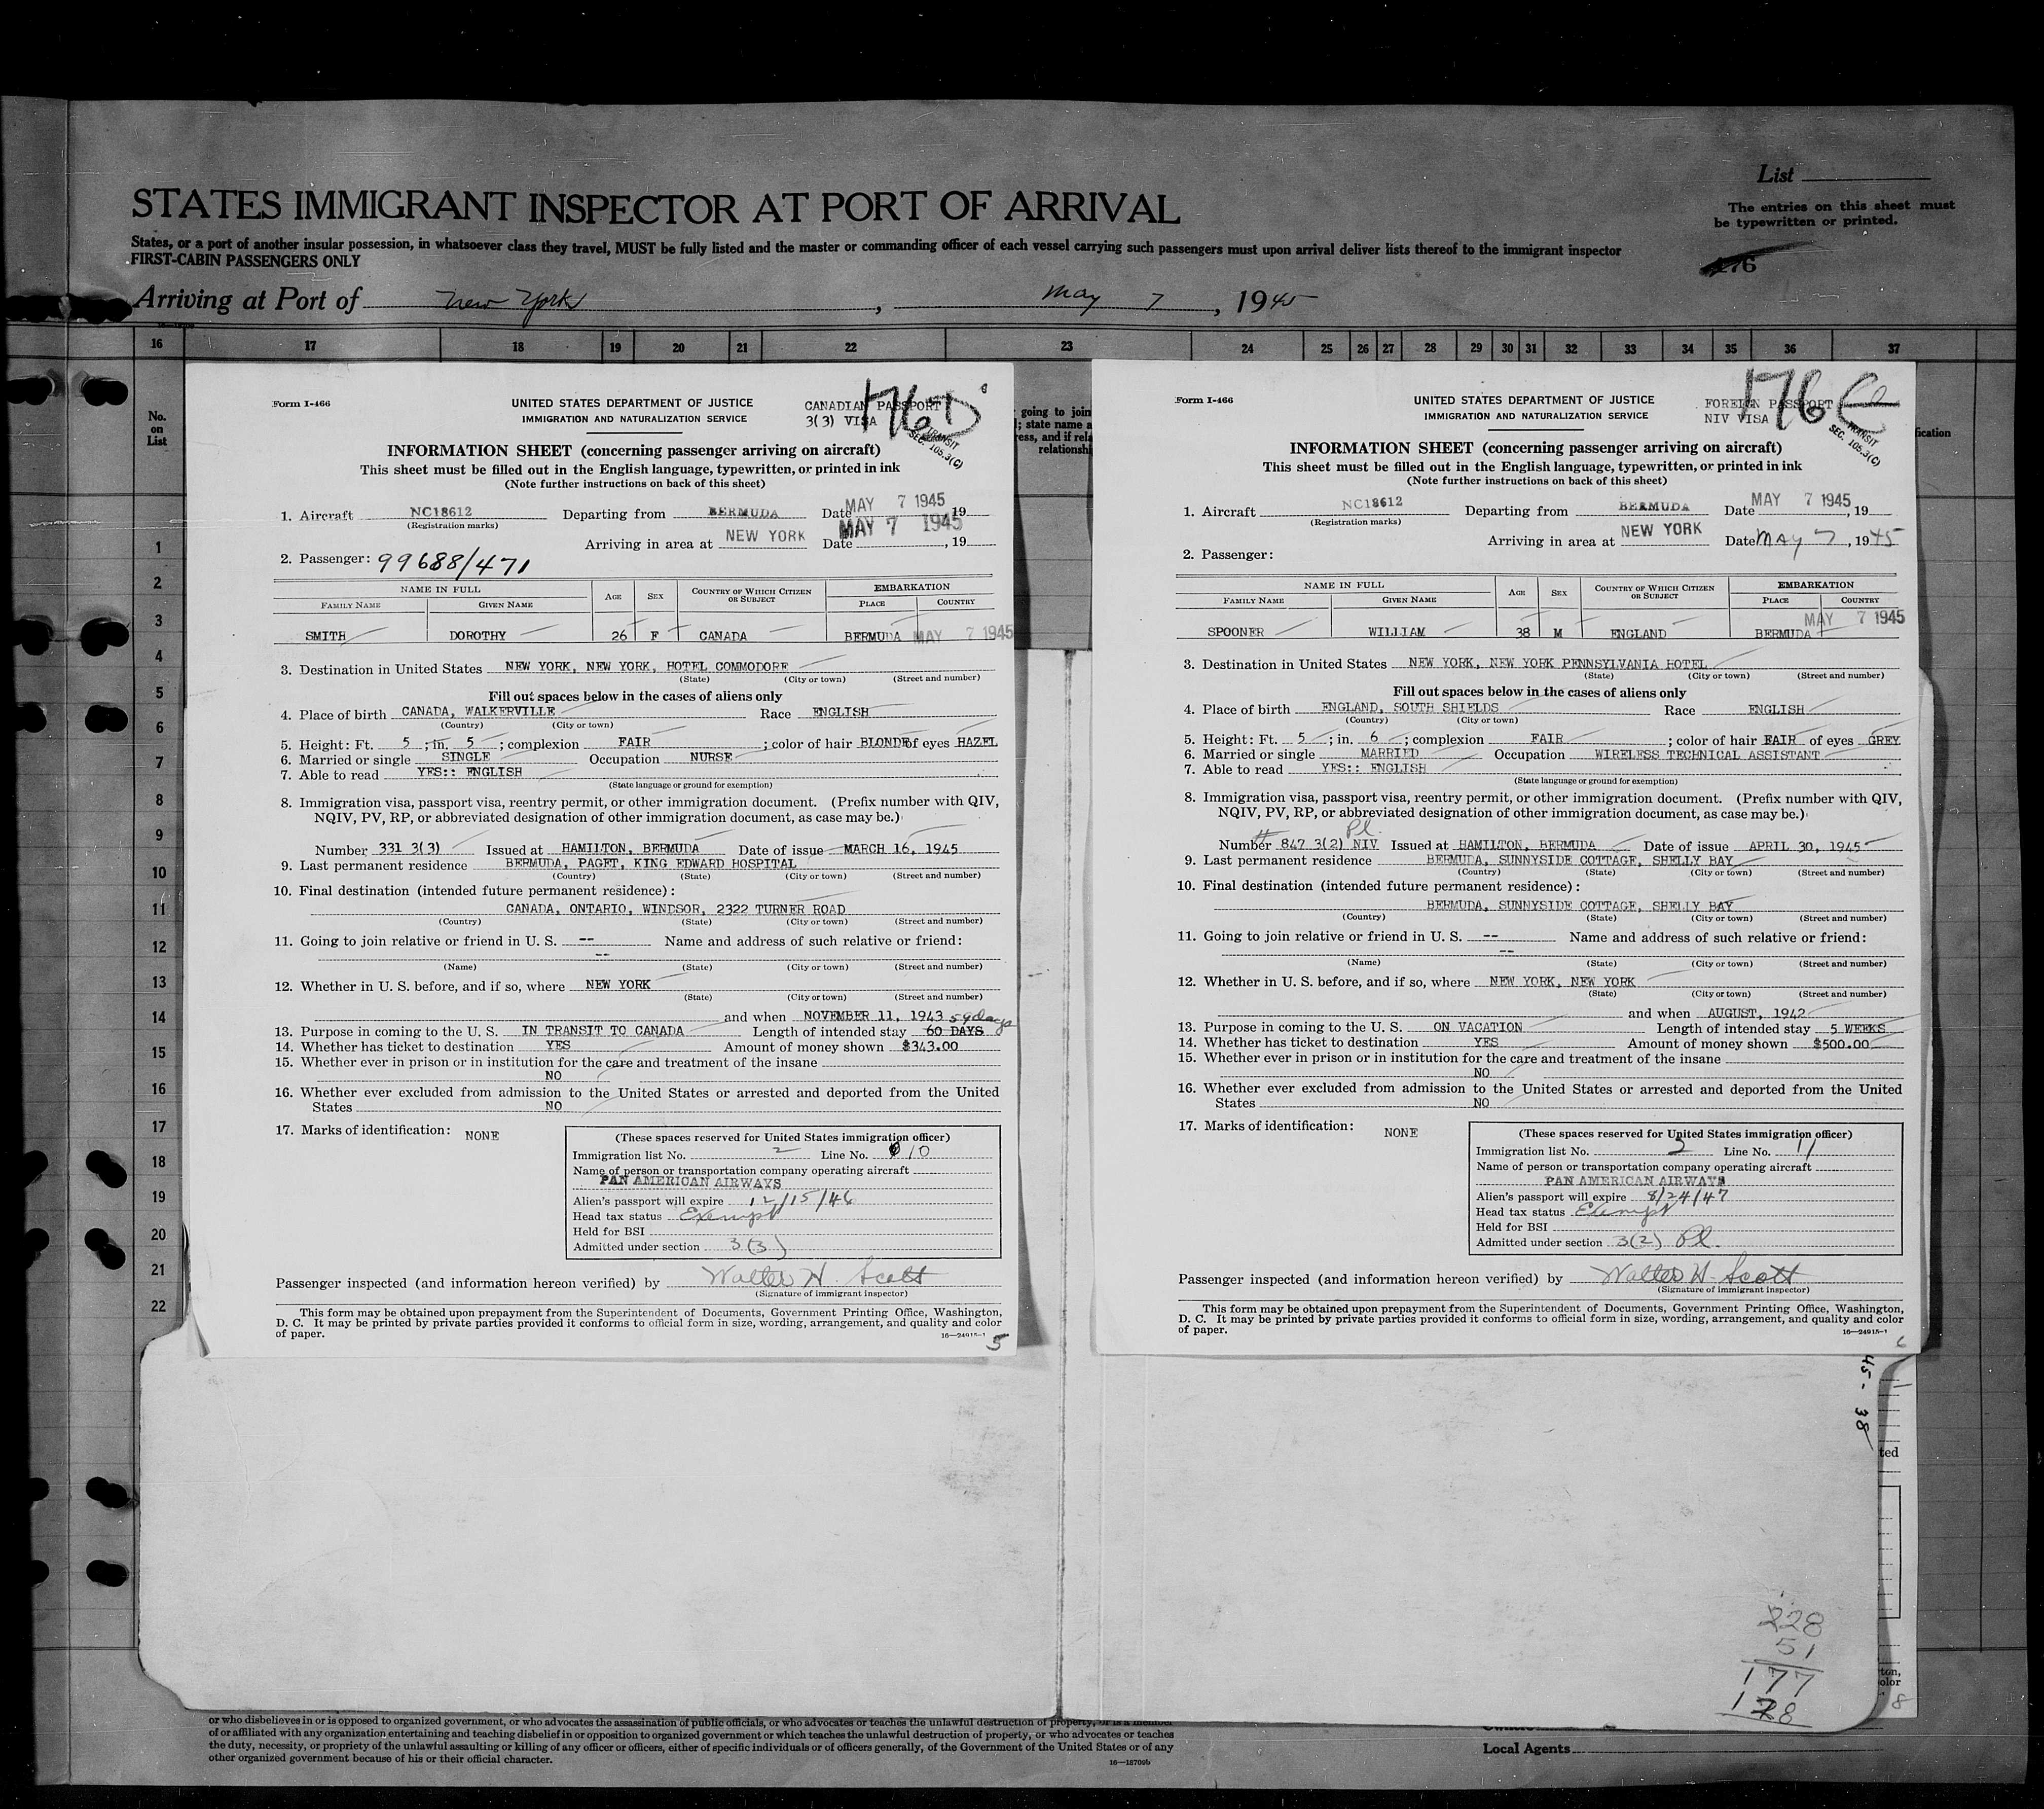 List
STATES IMMIGRANT INSPECTOR AT PORT OF ARRIVAL
The entries on this sheet must
be typewritten or printed.
States, or a port of another insular possession, in whatsoever class they travel, MUST be fully listed and the master or commanding officer of each vessel carrying such passengers must upon arrival deliver lists thereof to the immigrant inspector
FIRST-CABIN PASSENGERS ONLY
Arriving at Port of New York, May 7, 1945
16 17 18 19 20 21 22 23 24 25 26 27 28 29 30 31 32 33 34 35 36 37
No.
on
List
1
2
3
4
5
6
7
8
9
10
11
12
13
14
15
16
17
18
19
20
21
22
Form I-466
UNITED STATES DEPARTMENT OF JUSTICE
IMMIGRATION AND NATURALIZATION SERVICE
CANADIAN PASSPORT
3(3) VISA
176D
TRANSIT
SEC. 105.3(C)
INFORMATION SHEET (concerning passenger arriving on aircraft)
This sheet must be filled out in the English language, typewritten, or printed in ink
(Note further instructions on back of this sheet)
1. Aircraft NC18612 Departing from BERMUDA Date MAY 7 1945, 19
(Registration marks)
Arriving in area at NEW YORK Date MAY 7 1945, 19
2. Passenger: 99688/471
NAME IN FULL AGE SEX COUNTRY OF WHICH CITIZEN OR SUBJECT EMBARKATION
FAMILY NAME GIVEN NAME PLACE COUNTRY
SMITH DOROTHY 26 F CANADA BERMUDA MAY 7 1945
3. Destination in United States NEW YORK, NEW YORK, HOTEL COMMODORE
(State) (City or town) (Street and number)
Fill out spaces below in the cases of aliens only
4. Place of birth CANADA, WALKERVILLE Race ENGLISH
(Country) (City or town)
5. Height: Ft. 5; in. 5; complexion FAIR; color of hair BLONDE of eyes HAZEL
6. Married or single SINGLE Occupation NURSE
7. Able to read YES:: ENGLISH
(State language or ground for exemption)
8. Immigration visa, passport visa, reentry permit, or other immigration document. (Prefix number with QIV,
NQIV, PV, RP, or abbreviated designation of other immigration document, as case may be.)
Number 331 3(3) Issued at HAMILTON, BERMUDA Date of issue MARCH 16, 1945
9. Last permanent residence BERMUDA, PAGET, KING EDWARD HOSPITAL
(Country) (State) (City or town) (Street and number)
10. Final destination (intended future permanent residence):
CANADA, ONTARIO, WINDSOR, 2322 TURNER ROAD
(Country) (State) (City or town) (Street and number)
11. Going to join relative or friend in U. S. -- Name and address of such relative or friend:
--
(Name) (State) (City or town) (Street and number)
12. Whether in U. S. before, and if so, where NEW YORK
(State) (City or town) (Street and number)
and when NOVEMBER 11, 1943 59 days
13. Purpose in coming to the U. S. IN TRANSIT TO CANADA Length of intended stay 60 DAYS
14. Whether has ticket to destination YES Amount of money shown $343.00
15. Whether ever in prison or in institution for the care and treatment of the insane
NO
16. Whether ever excluded from admission to the United States or arrested and deported from the United
States NO
17. Marks of identification: NONE
(These spaces reserved for United States immigration officer)
Immigration list No. 2 Line No. 10
Name of person or transportation company operating aircraft
PAN AMERICAN AIRWAYS
Alien's passport will expire 12/15/46
Head tax status Exempt
Held for BSI
Admitted under section 3(3)
Passenger inspected (and information hereon verified) by Walter H. Scott
(Signature of immigrant inspector)
This form may be obtained upon prepayment from the Superintendent of Documents, Government Printing Office, Washington,
D. C. It may be printed by private parties provided it conforms to official form in size, wording, arrangement, and quality and color
of paper.
16—24915-1
5
going to join
; state name a
ress, and if rela
relationshi
Form I-466
UNITED STATES DEPARTMENT OF JUSTICE
IMMIGRATION AND NATURALIZATION SERVICE
FOREIGN PASSPORT
NIV VISA
176 E
TRANSIT
SEC. 105.3(C)
INFORMATION SHEET (concerning passenger arriving on aircraft)
This sheet must be filled out in the English language, typewritten, or printed in ink
(Note further instructions on back of this sheet)
1. Aircraft NC18612 Departing from BERMUDA Date MAY 7 1945, 19
(Registration marks)
Arriving in area at NEW YORK Date MAY 7, 1945
2. Passenger:
NAME IN FULL AGE SEX COUNTRY OF WHICH CITIZEN OR SUBJECT EMBARKATION
FAMILY NAME GIVEN NAME PLACE COUNTRY
SPOONER WILLIAM 38 M ENGLAND BERMUDA MAY 7 1945
3. Destination in United States NEW YORK, NEW YORK PENNSYLVANIA HOTEL
(State) (City or town) (Street and number)
Fill out spaces below in the cases of aliens only
4. Place of birth ENGLAND, SOUTH SHIELDS Race ENGLISH
(Country) (City or town)
5. Height: Ft. 5; in. 6; complexion FAIR; color of hair FAIR of eyes GREY
6. Married or single MARRIED Occupation WIRELESS TECHNICAL ASSISTANT
7. Able to read YES:: ENGLISH
(State language or ground for exemption)
8. Immigration visa, passport visa, reentry permit, or other immigration document. (Prefix number with QIV,
NQIV, PV, RP, or abbreviated designation of other immigration document, as case may be.)
Pl.
Number # 847 3(2) NIV Issued at HAMILTON, BERMUDA Date of issue APRIL 30, 1945
9. Last permanent residence BERMUDA, SUNNYSIDE COTTAGE, SHELLY BAY
(Country) (State) (City or town) (Street and number)
10. Final destination (intended future permanent residence):
BERMUDA, SUNNYSIDE COTTAGE, SHELLY BAY
(Country) (State) (City or town) (Street and number)
11. Going to join relative or friend in U. S. -- Name and address of such relative or friend:
--
(Name) (State) (City or town) (Street and number)
12. Whether in U. S. before, and if so, where NEW YORK, NEW YORK
(State) (City or town) (Street and number)
and when AUGUST, 1942
13. Purpose in coming to the U. S. ON VACATION Length of intended stay 5 WEEKS
14. Whether has ticket to destination YES Amount of money shown $500.00
15. Whether ever in prison or in institution for the care and treatment of the insane
NO
16. Whether ever excluded from admission to the United States or arrested and deported from the United
States NO
17. Marks of identification: NONE
(These spaces reserved for United States immigration officer)
Immigration list No. 2 Line No. 11
Name of person or transportation company operating aircraft
PAN AMERICAN AIRWAYS
Alien's passport will expire 8/24/47
Head tax status Exempt
Held for BSI
Admitted under section 3(2) Pl.
Passenger inspected (and information hereon verified) by Walter H. Scott
(Signature of immigrant inspector)
This form may be obtained upon prepayment from the Superintendent of Documents, Government Printing Office, Washington,
D. C. It may be printed by private parties provided it conforms to official form in size, wording, arrangement, and quality and color
of paper.
16—24915-1
6
45 - 38
ted
228
51
177
128
ton,
olor
8
or who disbelieves in or is opposed to organized government, or who advocates the assassination of public officials, or who advocates or teaches the unlawful destruction of property, or is a member
of or affiliated with any organization entertaining and teaching disbelief in or opposition to organized government or which teaches the unlawful destruction of property, or who advocates or teaches
the duty, necessity, or propriety of the unlawful assaulting or killing of any officer or officers, either of specific individuals or of officers generally, of the Government of the United States or of any
other organized government because of his or their official character.
16—18709b
Local Agents